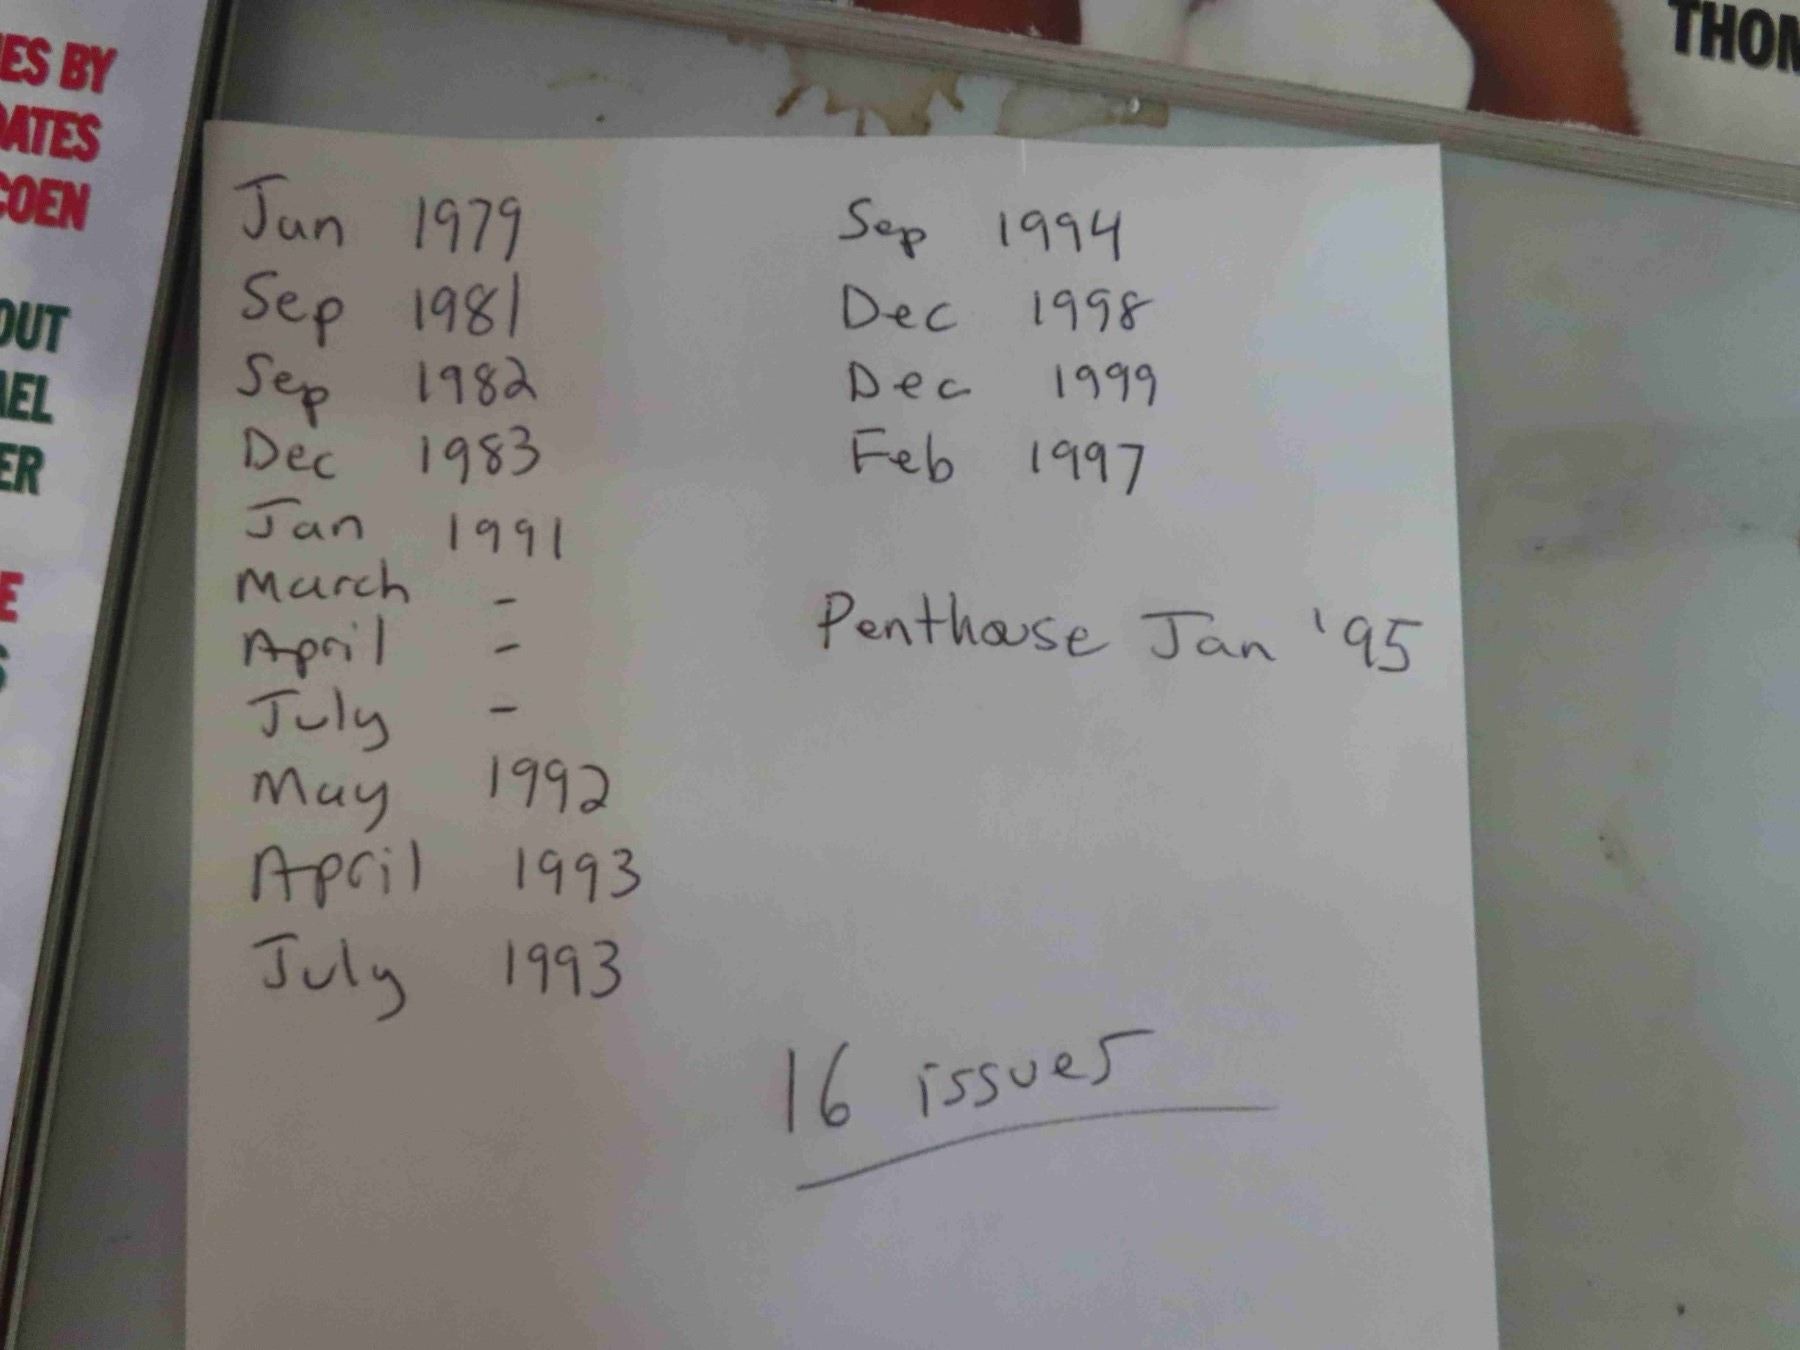 ES BY
DATES
COEN
OUT
AEL
ER
E
S
THOM
Jan 1979
Sep 1981
Sep 1982
Dec 1983
Jan 1991
March -
April -
July -
May 1992
April 1993
July 1993
Sep 1994
Dec 1998
Dec 1999
Feb 1997
Penthouse Jan '95
16 issues